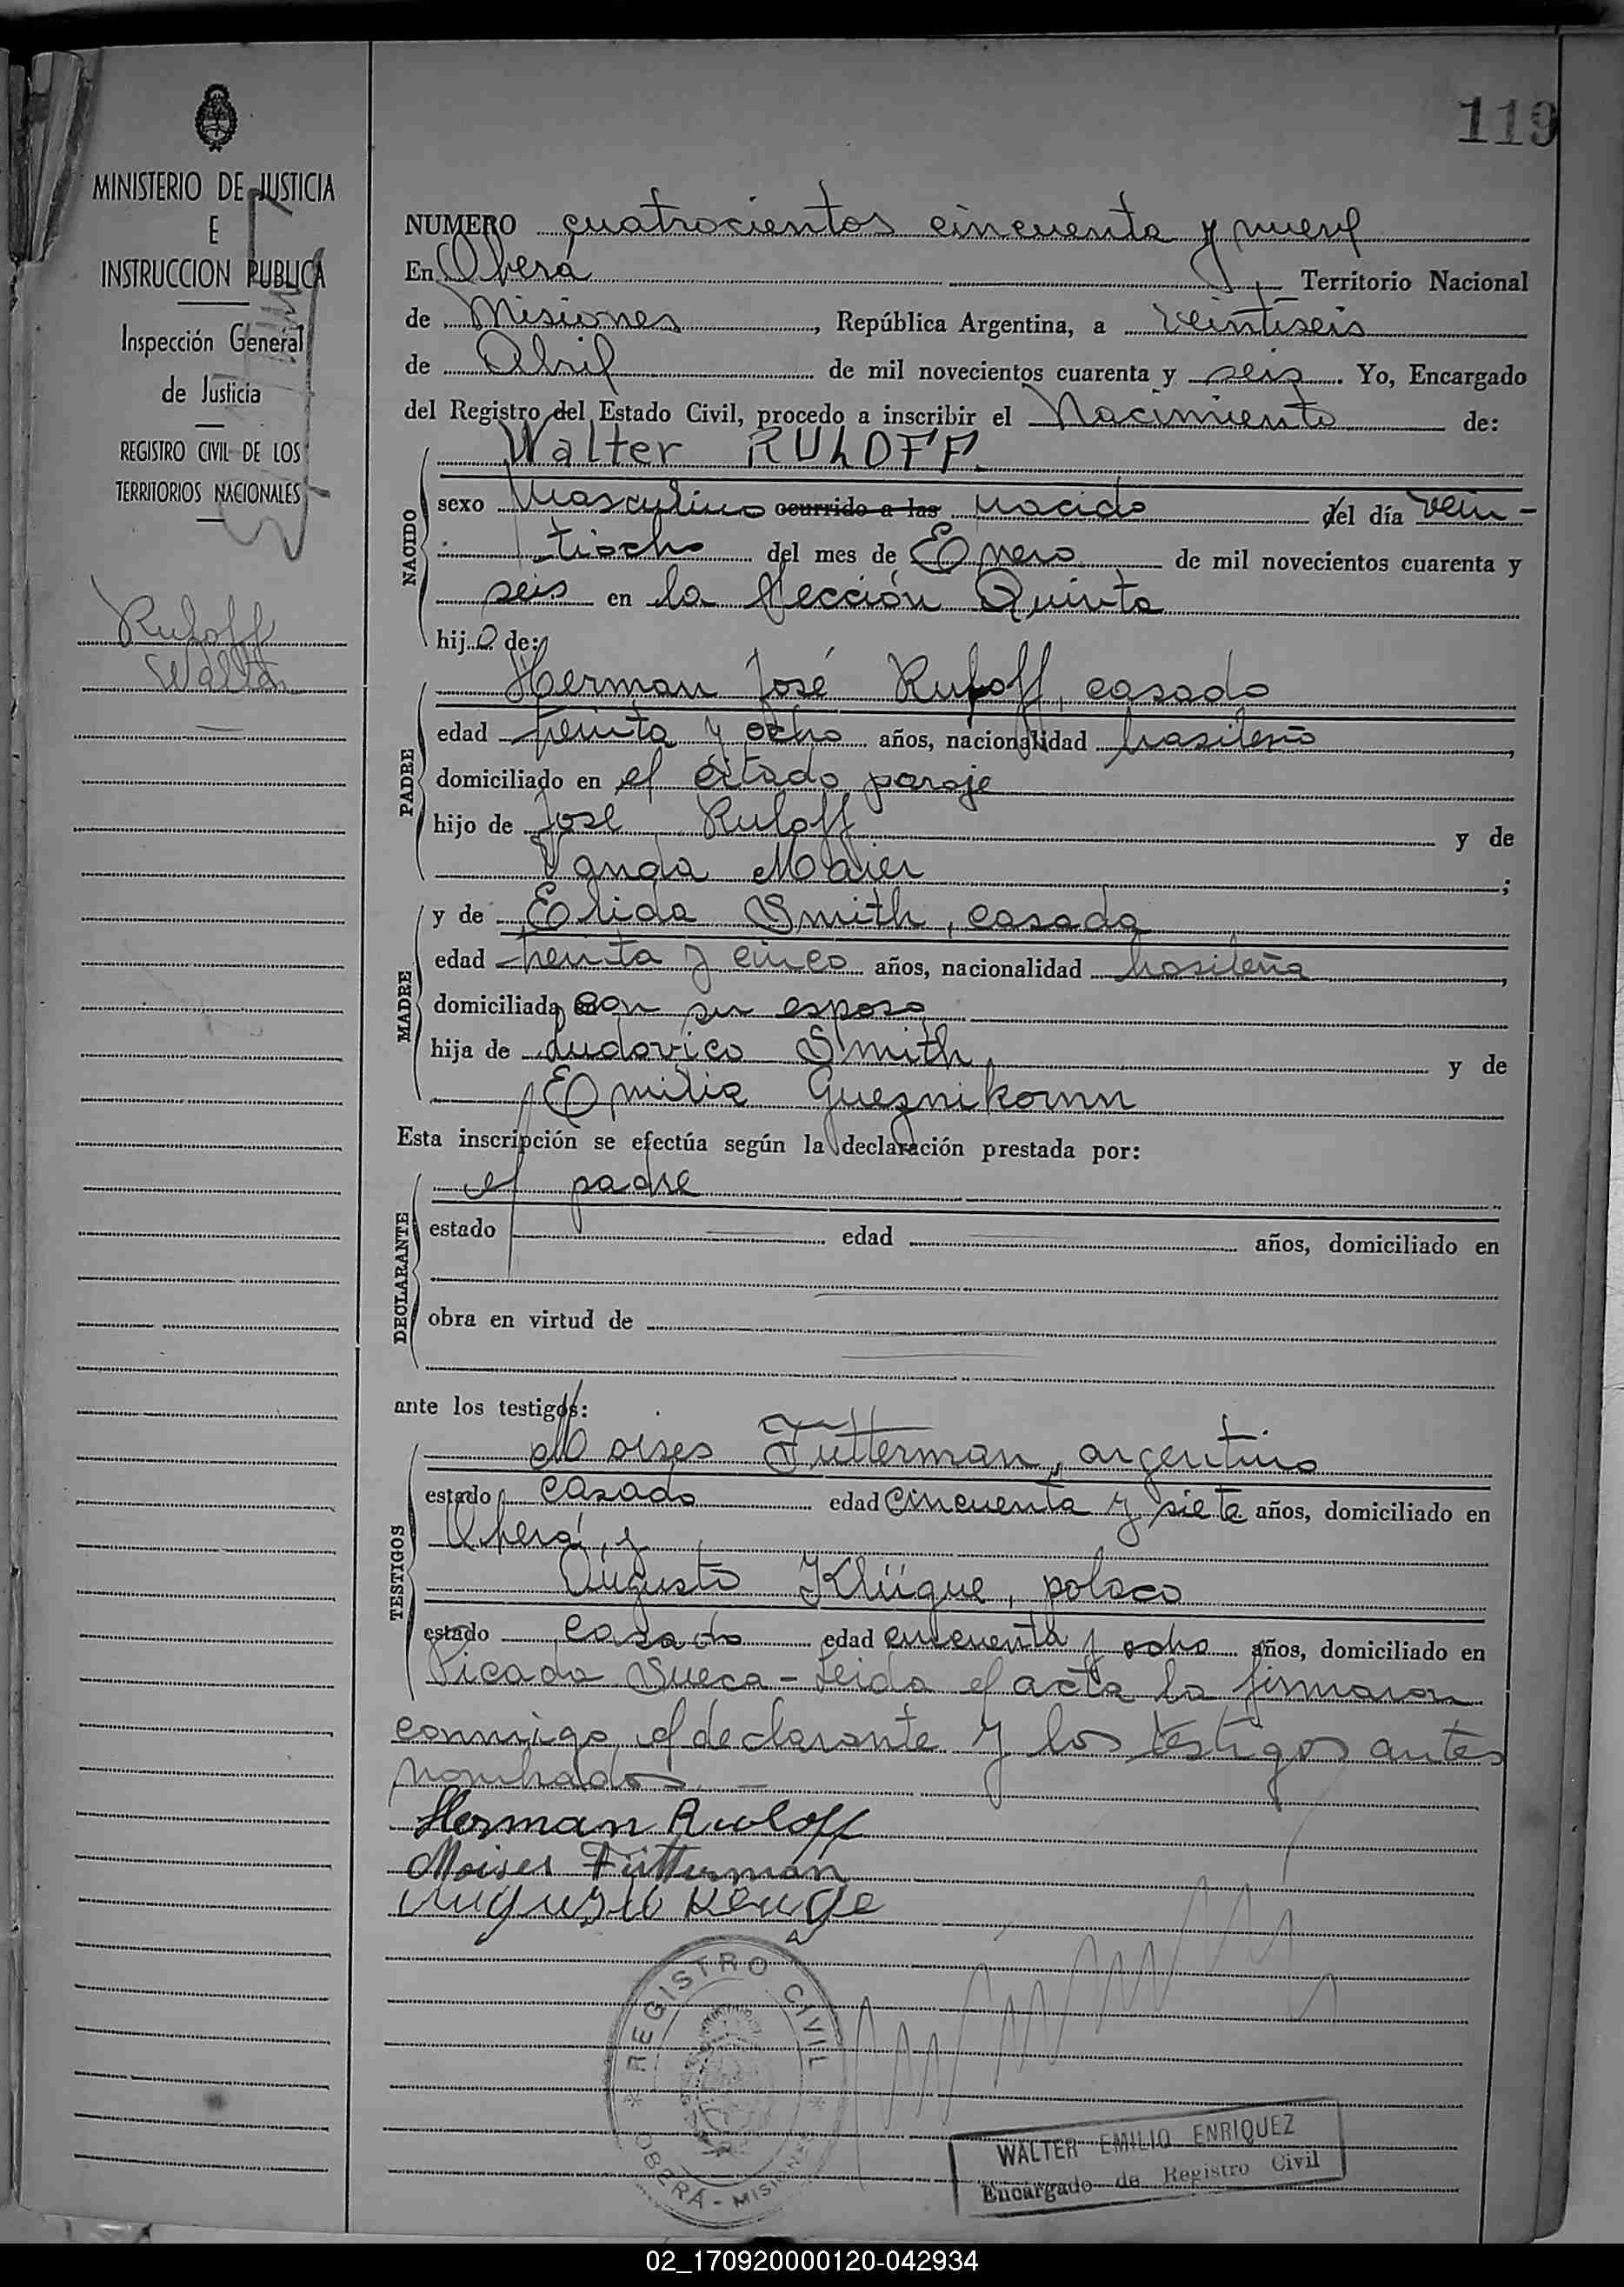 119
MINISTERIO DE JUSTICIA
E
INSTRUCCION PUBLICA
Inspección General
de Justicia
REGISTRO CIVIL DE LOS
TERRITORIOS NACIONALES
Ruloff
Walter
NUMERO cuatrocientos cincuenta y nueve
En Oberá Territorio Nacional
de Misiones, República Argentina, a veintiseis
de Abril de mil novecientos cuarenta y seis. Yo, Encargado
del Registro del Estado Civil, procedo a inscribir el Nacimiento de:
Walter RULOFF.
NACIDO
sexo Masculino ocurrido a las nacido del día vein-
tiocho del mes de Enero de mil novecientos cuarenta y
seis en la Sección Quinta
hijo de:
PADRE
Herman José Ruloff, casado
edad treinta y ocho años, nacionalidad brasileño,
domiciliado en el citado paraje
hijo de José Ruloff y de
Vanda Maier;
MADRE
y de Elida Smith, casada
edad treinta y cinco años, nacionalidad brasileña,
domiciliada con su esposo
hija de Ludovico Smith y de
Emilia Guesnikornn
Esta inscripción se efectúa según la declaración prestada por:
DECLARANTE
el padre
estado edad años, domiciliado en
obra en virtud de
ante los testigos:
TESTIGOS
Moises Futterman, argentino
estado casado edad cincuenta y siete años, domiciliado en
Oberá, y
Augusto Klüque, polaco
estado casado edad cincuenta y ocho años, domiciliado en
Picada Sueca - Leida el acta la firmaron
conmigo el declarante y los testigos antes
nombrados. -
Herman Ruloff
Moises Fütterman
Augusto
REGISTRO CIVIL
OBERÁ - MISIONES
WALTER EMILIO ENRIQUEZ
Encargado de Registro Civil
02_170920000120-042934